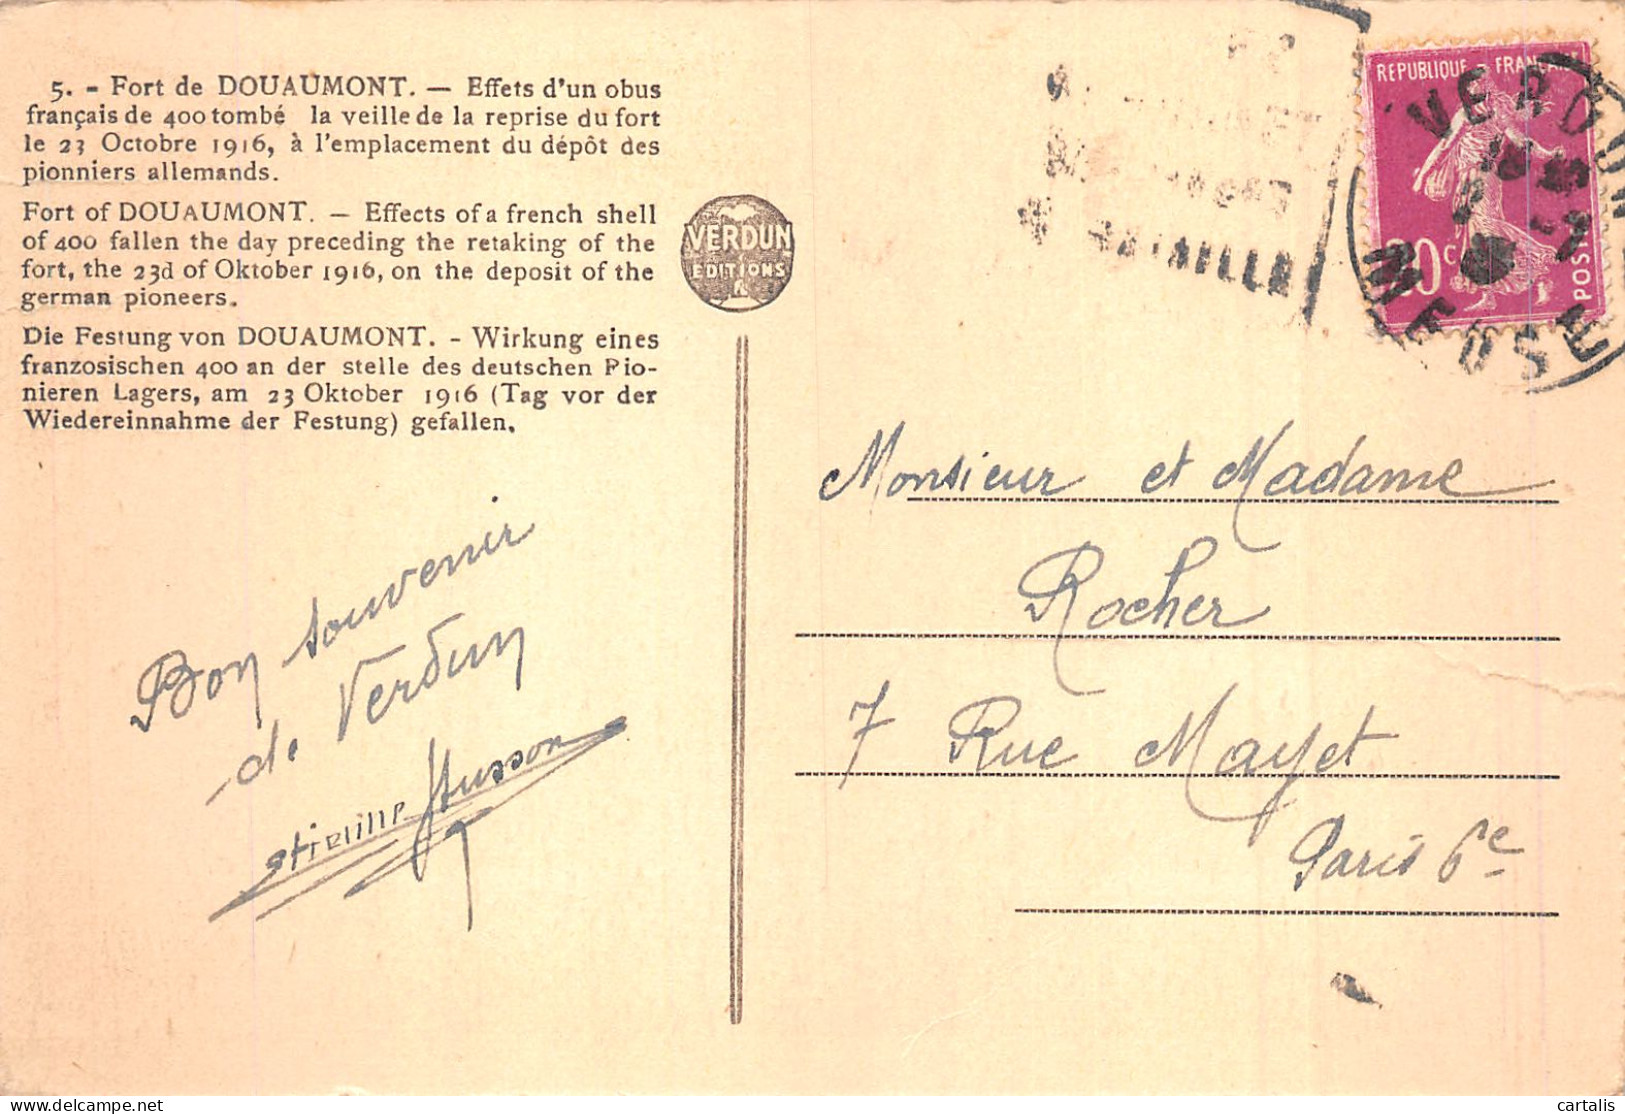 5. - Fort de DOUAUMONT. — Effets d'un obus
français de 400 tombé la veille de la reprise du fort
le 23 Octobre 1916, à l'emplacement du dépôt des
pionniers allemands.
Fort of DOUAUMONT. — Effects of a french shell
of 400 fallen the day preceding the retaking of the
fort, the 23d of Oktober 1916, on the deposit of the
german pioneers.
Die Festung von DOUAUMONT. - Wirkung eines
franzosischen 400 an der stelle des deutschen Pio-
nieren Lagers, am 23 Oktober 1916 (Tag vor der
Wiedereinnahme der Festung) gefallen.
VERDUN
EDITIONS
Bon souvenir
de Verdun
Husson
BATAILLE
REPUBLIQUE - FRANÇAISE
20c
POSTES
VERDUN
MEUSE
Monsieur et Madame
Rocher
7 Rue Mayet
Paris 6e
cartalis